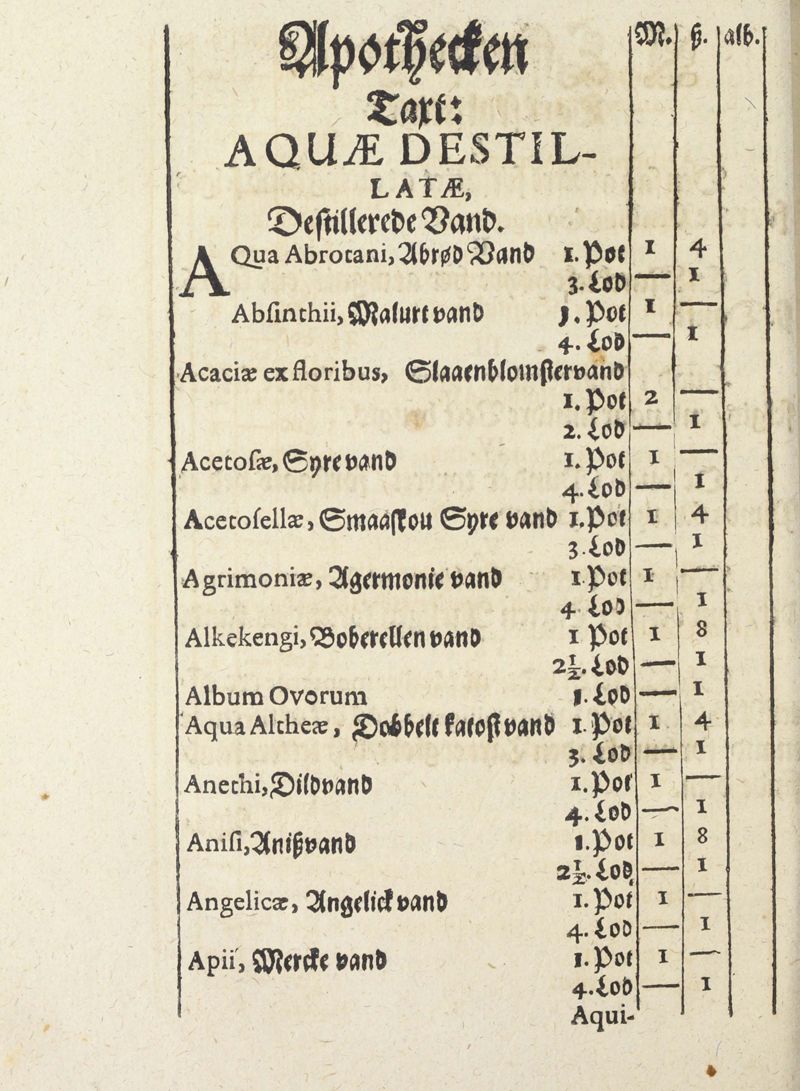 Apothecken M. ß. alb.
Taxt:
AQUÆ DESTIL-
LATÆ,
Destillerede Vand.
AQua Abrotani, Abrød Vand 1. Pot 1 4
3. Lod — 1
Absinthii, Malurt vand 1. Pot 1 —
4. Lod — 1
Acaciæ ex floribus, Slaaenblomster vand
1. Pot 2 —
2. Lod — 1
Acetosæ, Syre vand 1. Pot 1 —
4. Lod — 1
Acetosellæ, Smaaskou Syre vand 1. Pot 1 4
3. Lod — 1
Agrimoniæ, Agermonie vand 1. Pot 1 —
4 Lod — 1
Alkekengi, Boberellen vand 1 Pot 1 8
2½. Lod — 1
Album Ovorum 1. Lod — 1
Aqua Altheæ, Dobbelt Katost vand 1. Pot 1 4
3. Lod — 1
Anethi, Dild vand 1. Pot 1 —
4. Lod — 1
Anisi, Aniß vand 1. Pot 1 8
2½. Lod — 1
Angelicæ, Angelick vand 1. Pot 1 —
4. Lod — 1
Apii, Mercke vand 1. Pot 1 —
4. Lod — 1
Aqui-